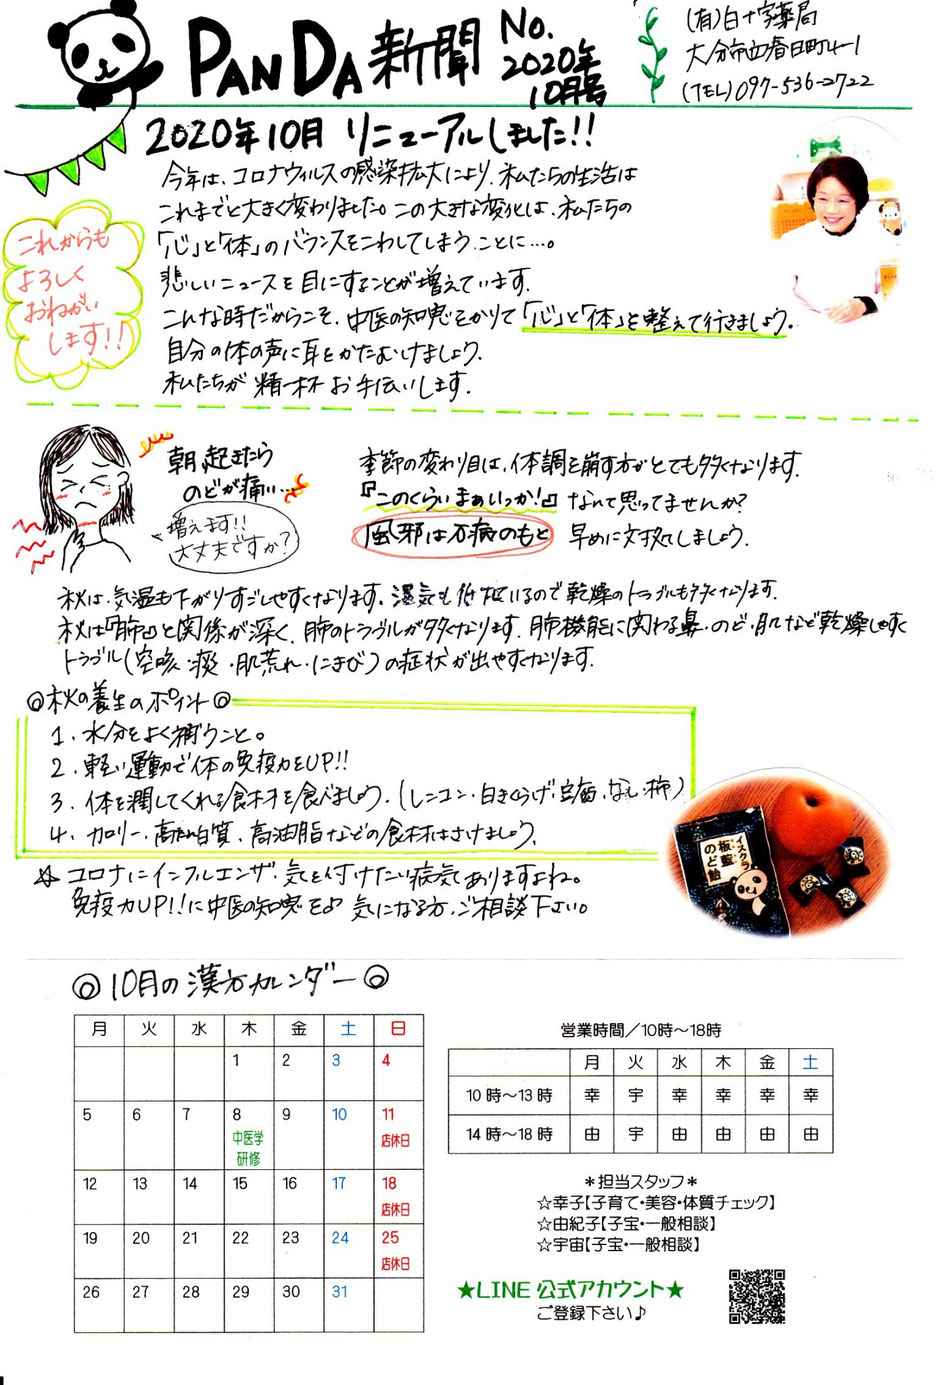 PANDA新聞 No. 2020年 10月号
(有)白十字薬局
大分市西春日町4-1
(TEL)097-536-2722
2020年10月 リニューアルしました!!
今年は、コロナウィルスの感染拡大により、私たちの生活は
これまでと大きく変わりました。この大きな変化は、私たちの
「心」と「体」のバランスをこわしてしまうことに…。
悲しいニュースを目にすることが増えています。
こんな時だからこそ、中医の知恵をかりて「心」と「体」を整えて行きましょう。
自分の体の声に耳をかたむけましょう。
私たちが精一杯お手伝いします。
これからも
よろしく
おねがい
します!!
朝、起きたら
のどが痛い…
増えます!!
大丈夫ですか?
季節の変わり目は、体調を崩す方がとても多くなります。
『このくらいまぁいっか!』なんて思ってませんか?
風邪は万病のもと 早めに対処しましょう。
秋は、気温も下がりすごしやすくなります。湿気も低いので乾燥のトラブルも多くなります。
秋は『肺』と関係が深く、肺のトラブルが多くなります。肺機能に関わる鼻・のど・肌など乾燥しやすく
トラブル(空咳・痰・肌荒れ・にきび)の症状が出やすくなります。
◎秋の養生のポイント◎
1. 水分をよく補うこと。
2. 軽い運動で体の免疫力をUP!!
3. 体を潤してくれる食材を食べましょう。(レンコン・白きくらげ・豆歯・なし・柿)
4. カロリー・高蛋白質、高油脂などの食材はさけましょう。
☆ コロナにインフルエンザ、気を付けたい病気ありますよね。
免疫力UP!!に中医の知恵を♪ 気になる方、ご相談下さい。
イスクラ
板藍
のど飴
◎10月の漢方カレンダー◎
月 火 水 木 金 土 日
1 2 3 4
5 6 7 8 9 10 11
中医学 店休日
研修
12 13 14 15 16 17 18
店休日
19 20 21 22 23 24 25
店休日
26 27 28 29 30 31
営業時間/10時~18時
月 火 水 木 金 土
10時~13時 幸 宇 幸 幸 幸 幸
14時~18時 由 宇 由 由 由 由
＊担当スタッフ＊
☆幸子【子育て・美容・体質チェック】
☆由紀子【子宝・一般相談】
☆宇宙【子宝・一般相談】
★LINE 公式アカウント★
ご登録下さい♪